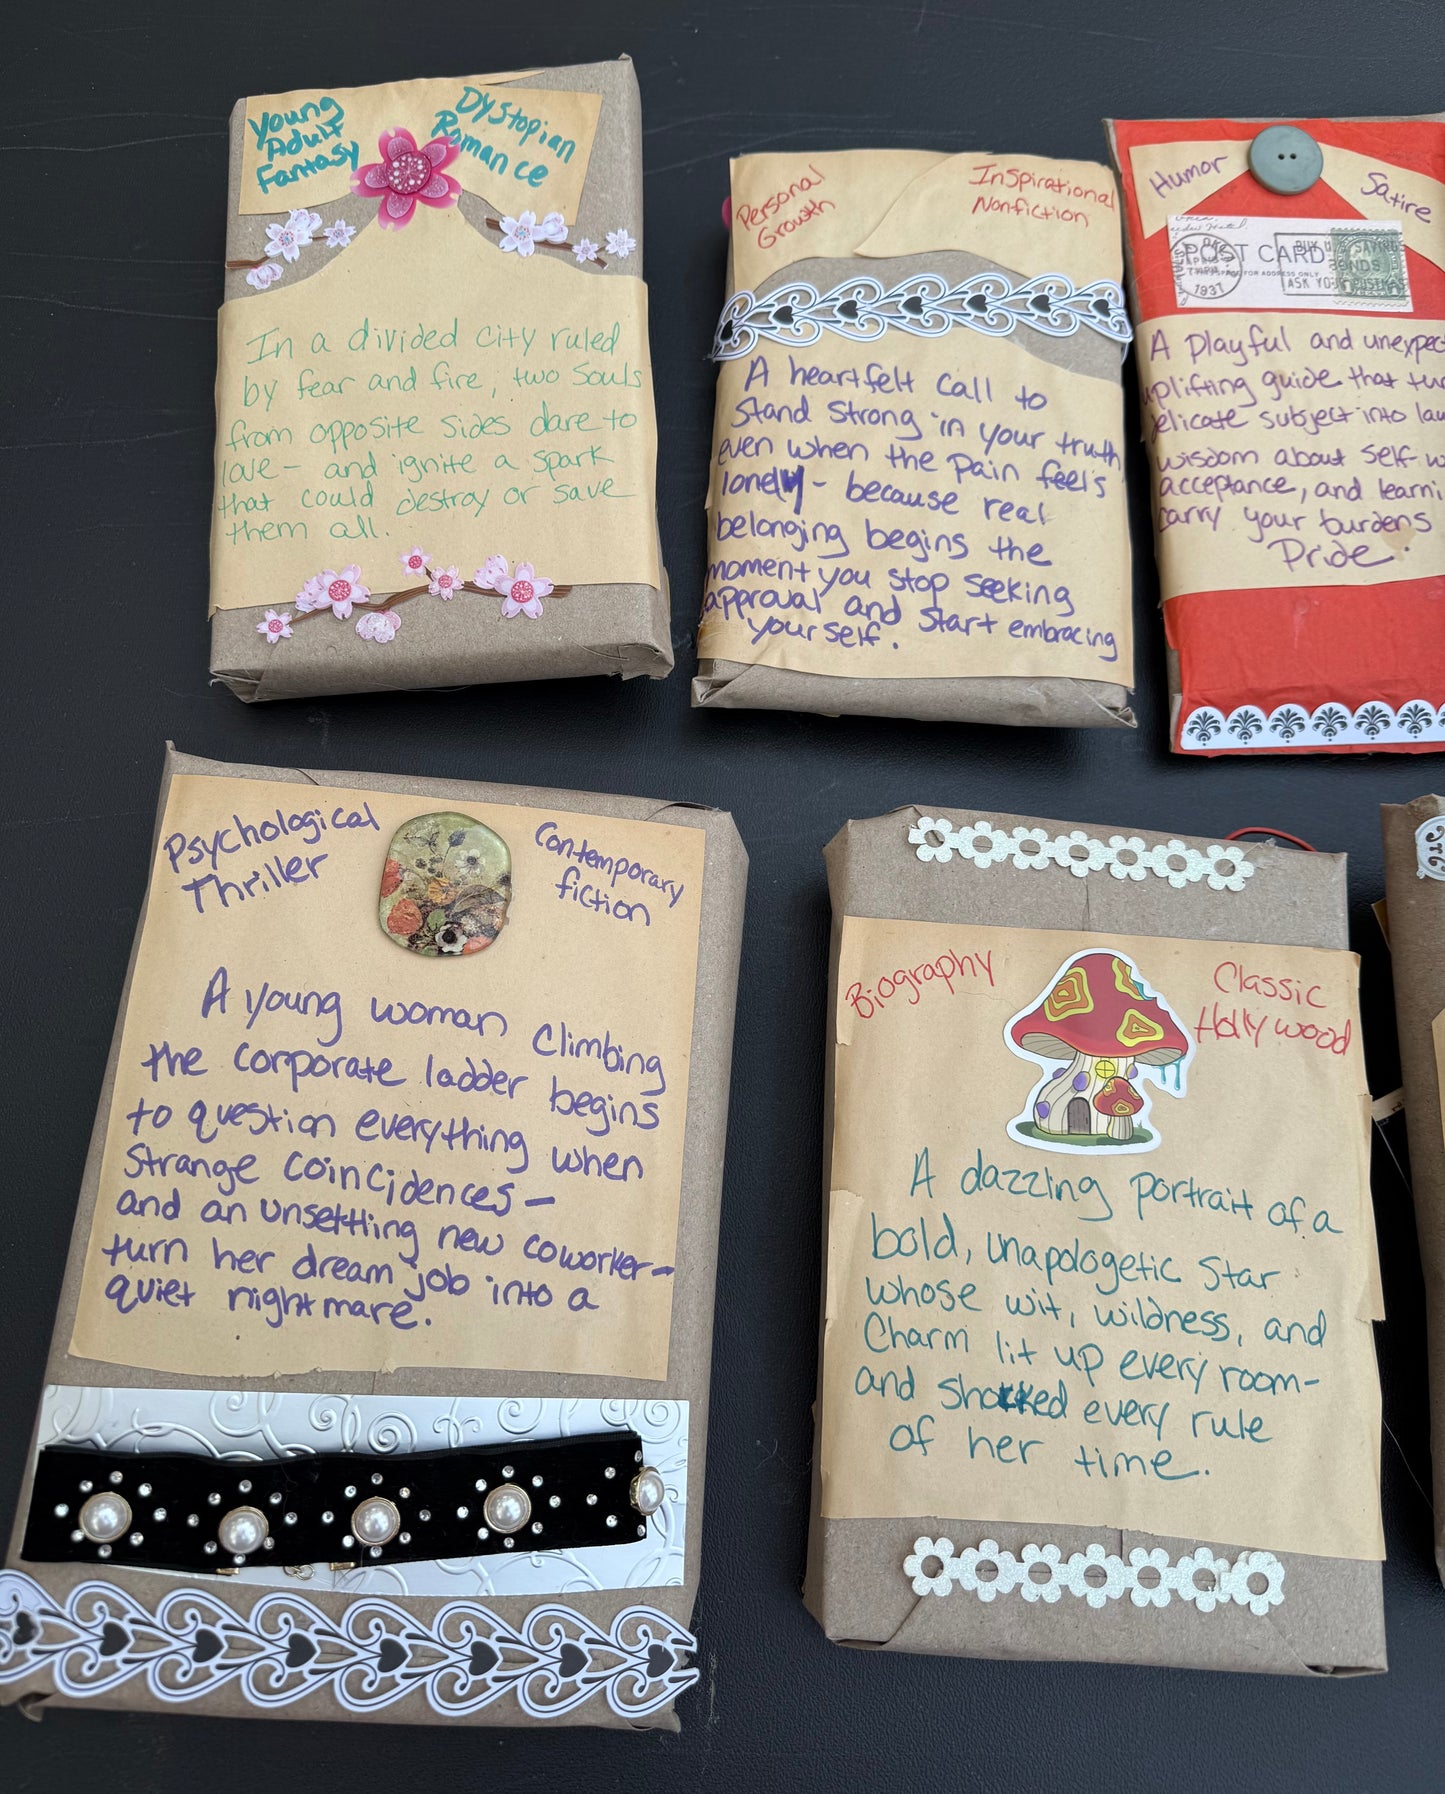 Young
Adult
Fantasy
Dystopian
Romance
In a divided city ruled
by fear and fire, two souls
from opposite sides dare to
love - and ignite a spark
that could destroy or save
them all.
Personal
Growth
Inspirational
Nonfiction
A heartfelt call to
stand strong in your truth
even when the pain feels
lonely - because real
belonging begins the
moment you stop seeking
approval and start embracing
yourself.
Humor
Satire
POST CARD
1937
BUY U.S. SAVINGS
BONDS
ASK YOUR POSTMASTER
A playful and unexpec
uplifting guide that tur
delicate subject into lau
wisdom about self-w
acceptance, and learni
carry your burdens
Pride.
Psychological
Thriller
Contemporary
fiction
A young woman climbing
the corporate ladder begins
to question everything when
strange coincidences -
and an unsettling new coworker -
turn her dream job into a
quiet nightmare.
Biography
Classic
Hollywood
A dazzling portrait of a
bold, unapologetic star
whose wit, wildness, and
charm lit up every room -
and shocked every rule
of her time.